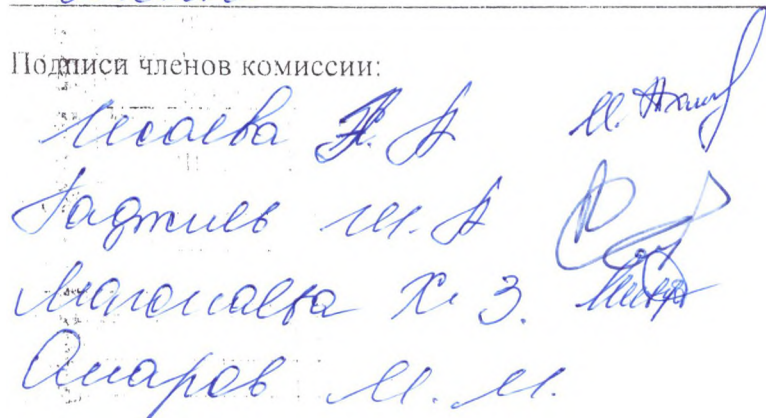 Подписи членов комиссии:
Исаева Я. А
Гаджиев Ш. А
Магомаева Х. З.
Омаров М. М.